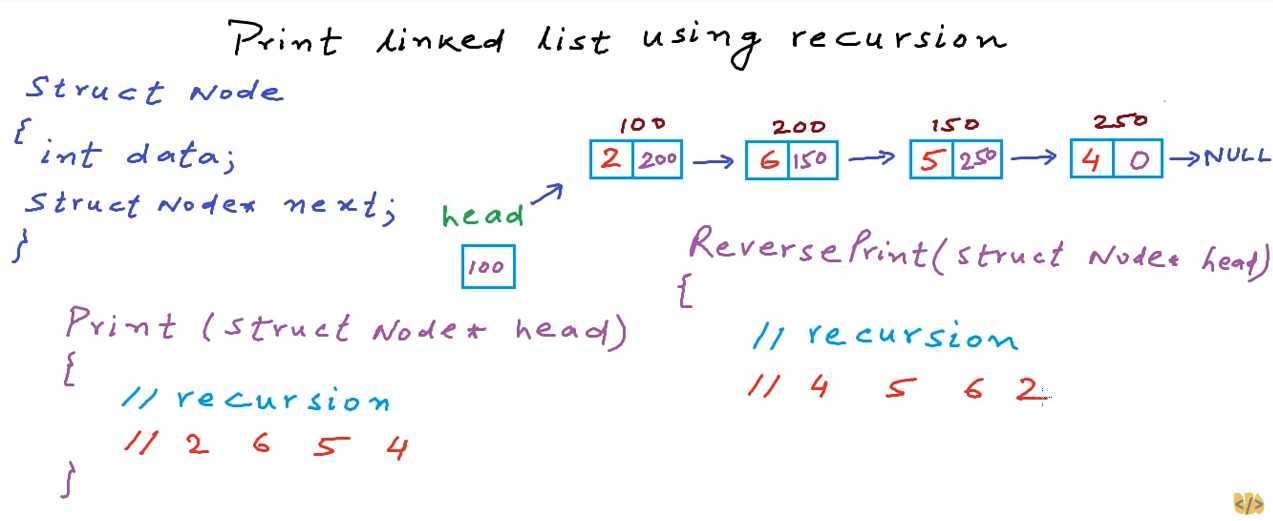 Print linked list using recursion
Struct Node
{
int data;
Struct Node* next;
}
100 200 150 250
2 200 → 6 150 → 5 250 → 4 0 → NULL
head
100
Print (struct Node* head)
{
// recursion
// 2 6 5 4
}
ReversePrint(struct Node* head)
{
// recursion
// 4 5 6 2
</>